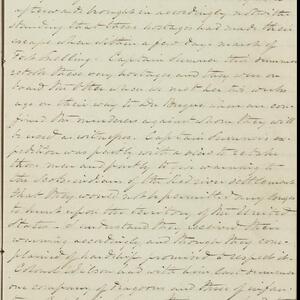 afterward brought in accordingly notwith
standing that these hostages had made their
escape when within a few days march of
Fort Snelling. Captain Sumner then summon
these very hostages and they were on
board the other when we met her ten weeks
ago on their way to Du Buque iowa on con
front the murderers against whom they will
be used as witnesses. Captain Sumner's ex
pedition was partly with a view to retake
these men and partly to give warning to
the half-indians of the Red river settlement
that they would not be permitted any longer
to hunt upon the territory of the United
States. I understand they received their
warning accordingly and though they com
plained of hardship promised to respect it.
Colonel Wilson and with him Lieutenant
one company of dragoons and three of infan